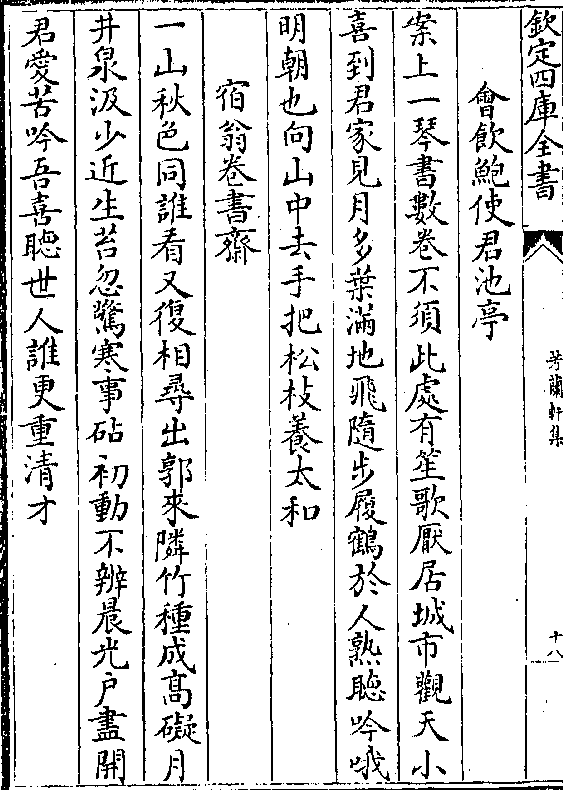 欽定四庫全書
芳蘭軒集
十八
會飲鮑使君池亭
案上一琴書數卷不須此處有笙歌厭居城市觀天小
喜到君家見月多葉滿地飛隨步履鶴於人熟聽吟哦
明朝也向山中去手把松枝養太和
宿翁卷書齋
一山秋色同誰看又復相尋出郭來隣竹種成高礙月
井泉汲少近生苔忽驚寒事砧初動不辨晨光户盡開
君愛苦吟吾喜聽世人誰更重清才